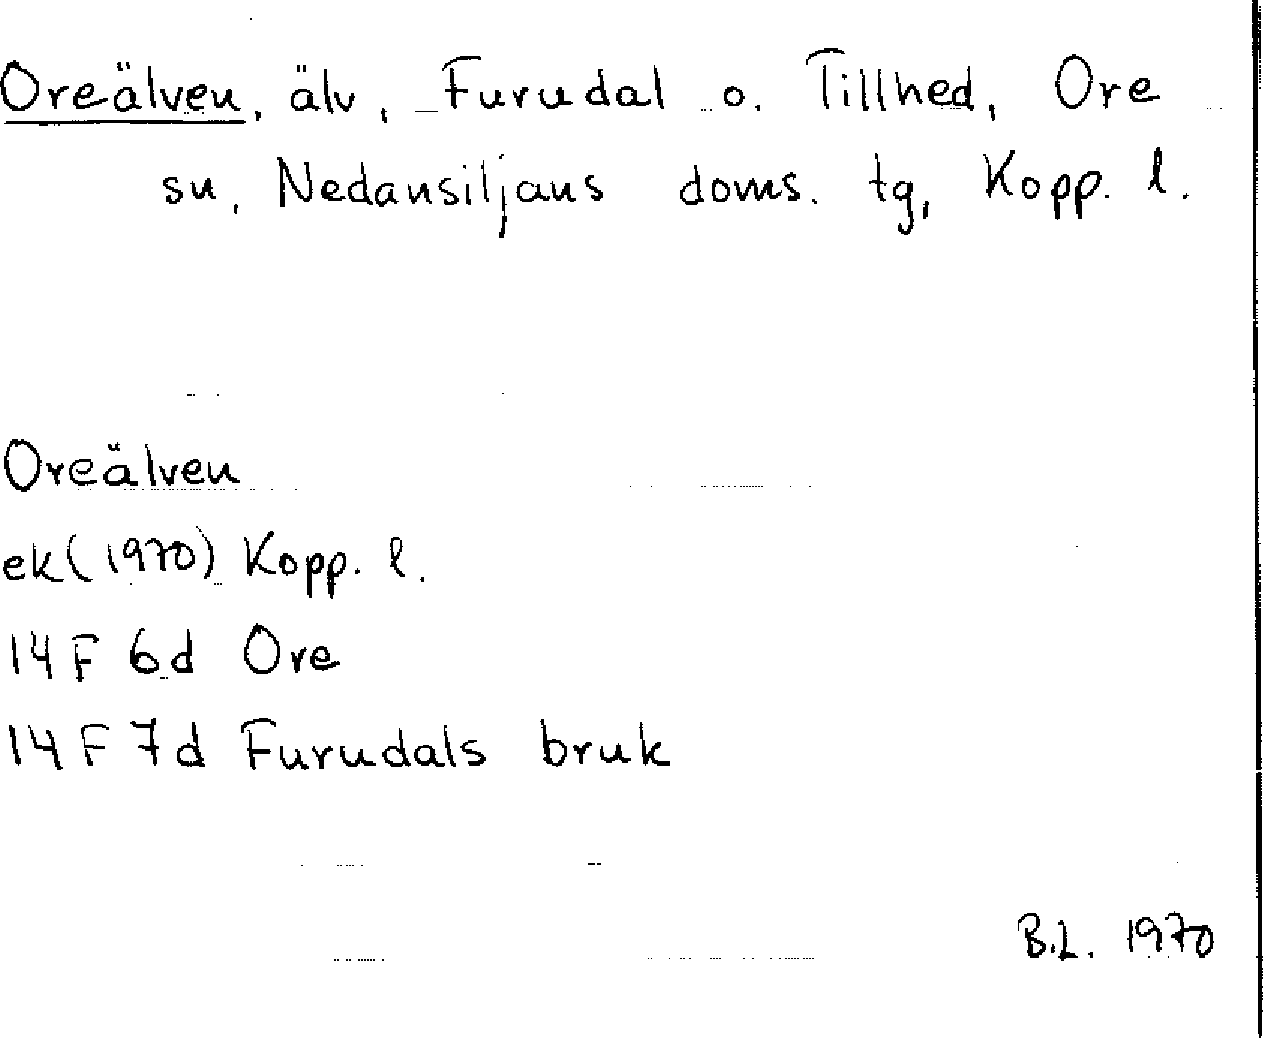 Oreälven, älv, Furudal o. Tillhed, Ore
sn, Nedansiljans doms. tg, Kopp. l.
Oreälven
ek (1970) Kopp. l.
14 F 6d Ore
14 F 7d Furudals bruk
B.L. 1970